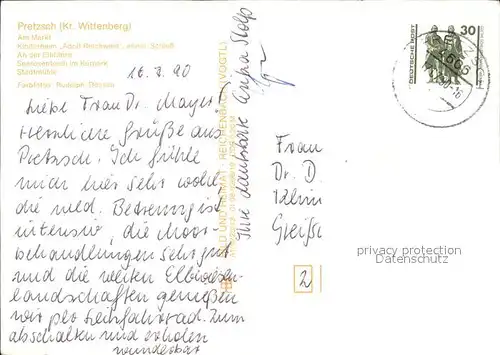 Pretzsch (Kr. Wittenberg)
Am Markt
Kinderheim „Adolf Reichwein“, ehem. Schloß
An der Elbfähre
Seerosenteich im Kurpark
Stadtmühle
Farbfotos: Rudolph, Dresden
16.7.90
Liebe Frau Dr. Mayer
Herzliche Grüße aus
Pretzsch. Ich fühle
mich hier sehr wohl
die med. Betreuung ist
intensiv, die Moor-
behandlungen sehr gut
und die weiten Elbwiesen-
landschaften genießen
wir per Leihfahrrad. Zum
abschalten und erholen
wunderbar
Ihre dankbare
BILD UND HEIMAT REICHENBACH (VOGTL)
30
DEUTSCHE POST
Frau
Dr. D
Klin
Greifs
2
privacy protection
Datenschutz